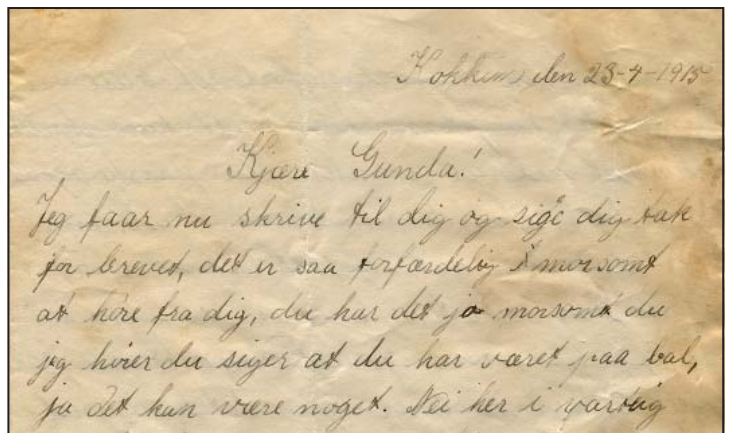 den 23-4-1915
Kjære Gunda!
Jeg faar nu skrive til dig og sige dig tak
for brevet, det er saa forfærdelig morsomt
at høre fra dig, du har det jo morsomt du
jeg hører du siger at du har været paa bal,
ja det kan være noget. Nei her i